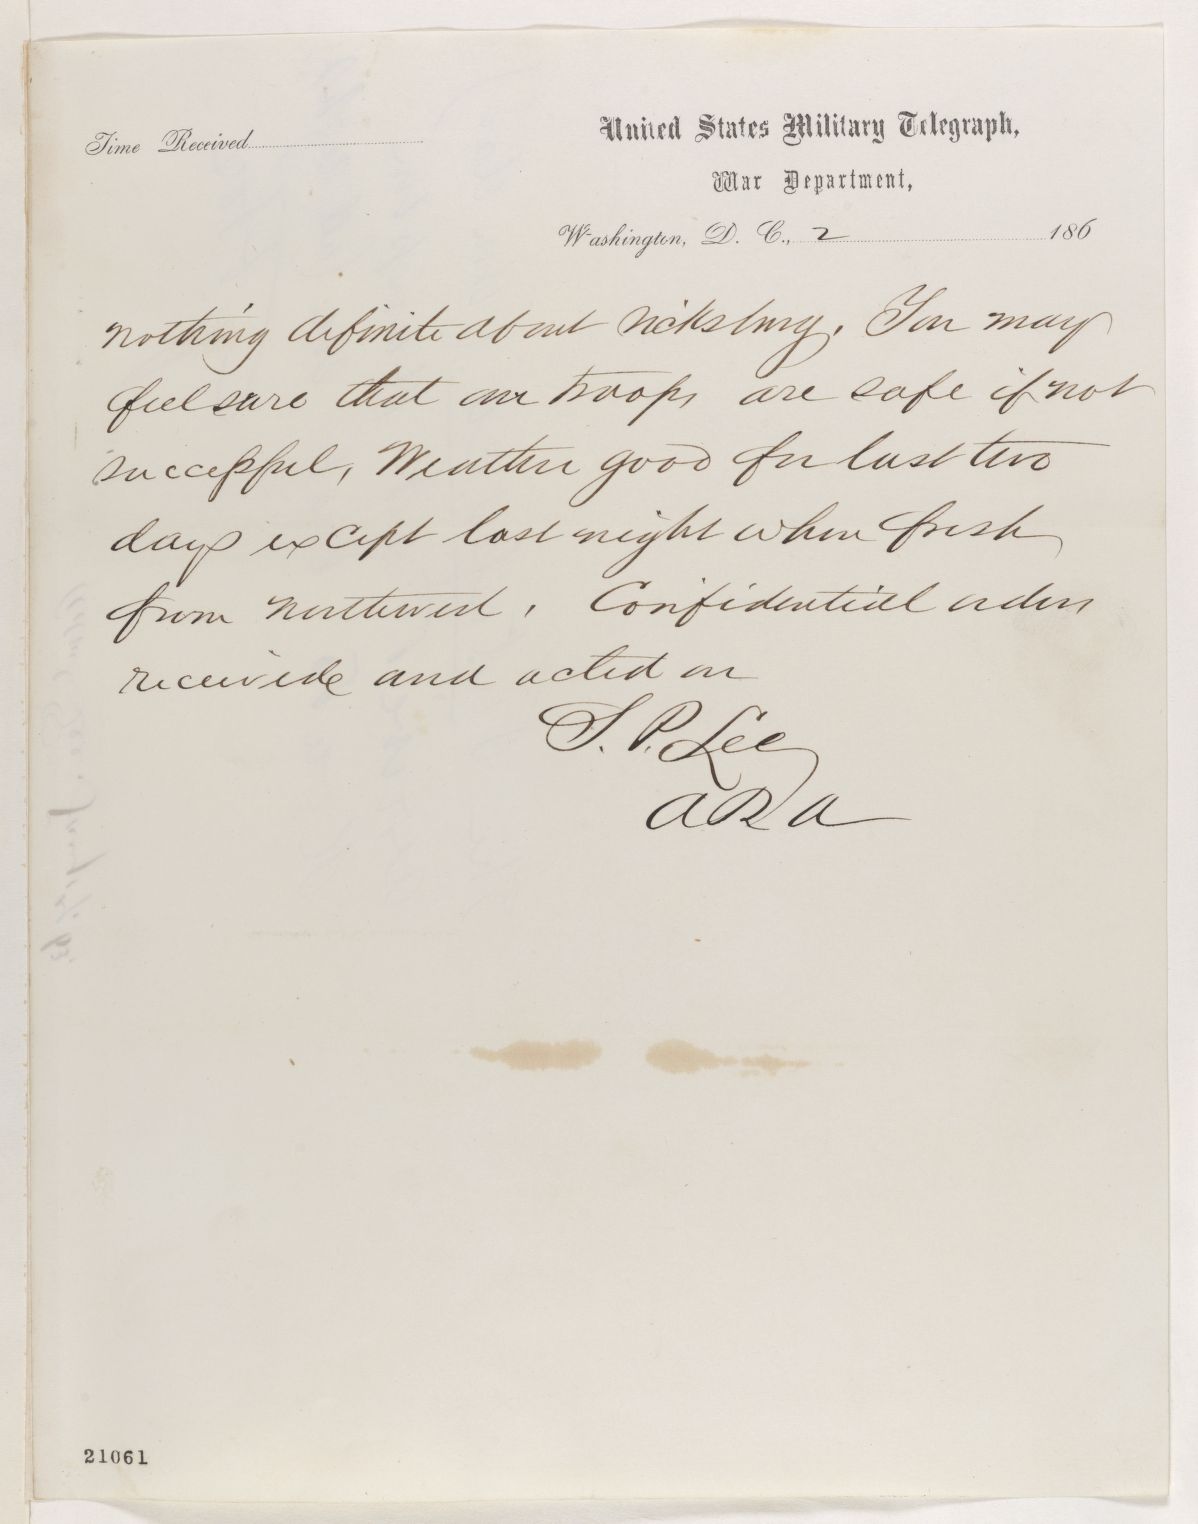 Time Received
United States Military Telegraph,
War Department,
Washington, D. C., 2 186
nothing definite about Vicksburg. You may
feel sure that our troops are safe if not
successful, Weather good for last two
days except last night when fresh
from northwest. Confidential orders
received and acted on
S. P. Lee
A R A
21061